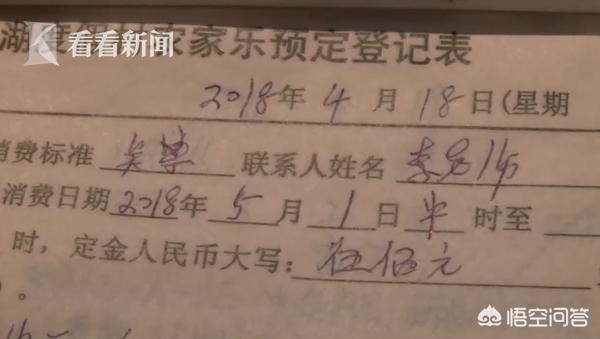 看看新闻
湖度假村农家乐预定登记表
2018年4月18日(星期
消费标准 联系人姓名 李老师
消费日期2018年5月1日 时至
时,定金人民币大写:伍佰元
)。
悟空问答